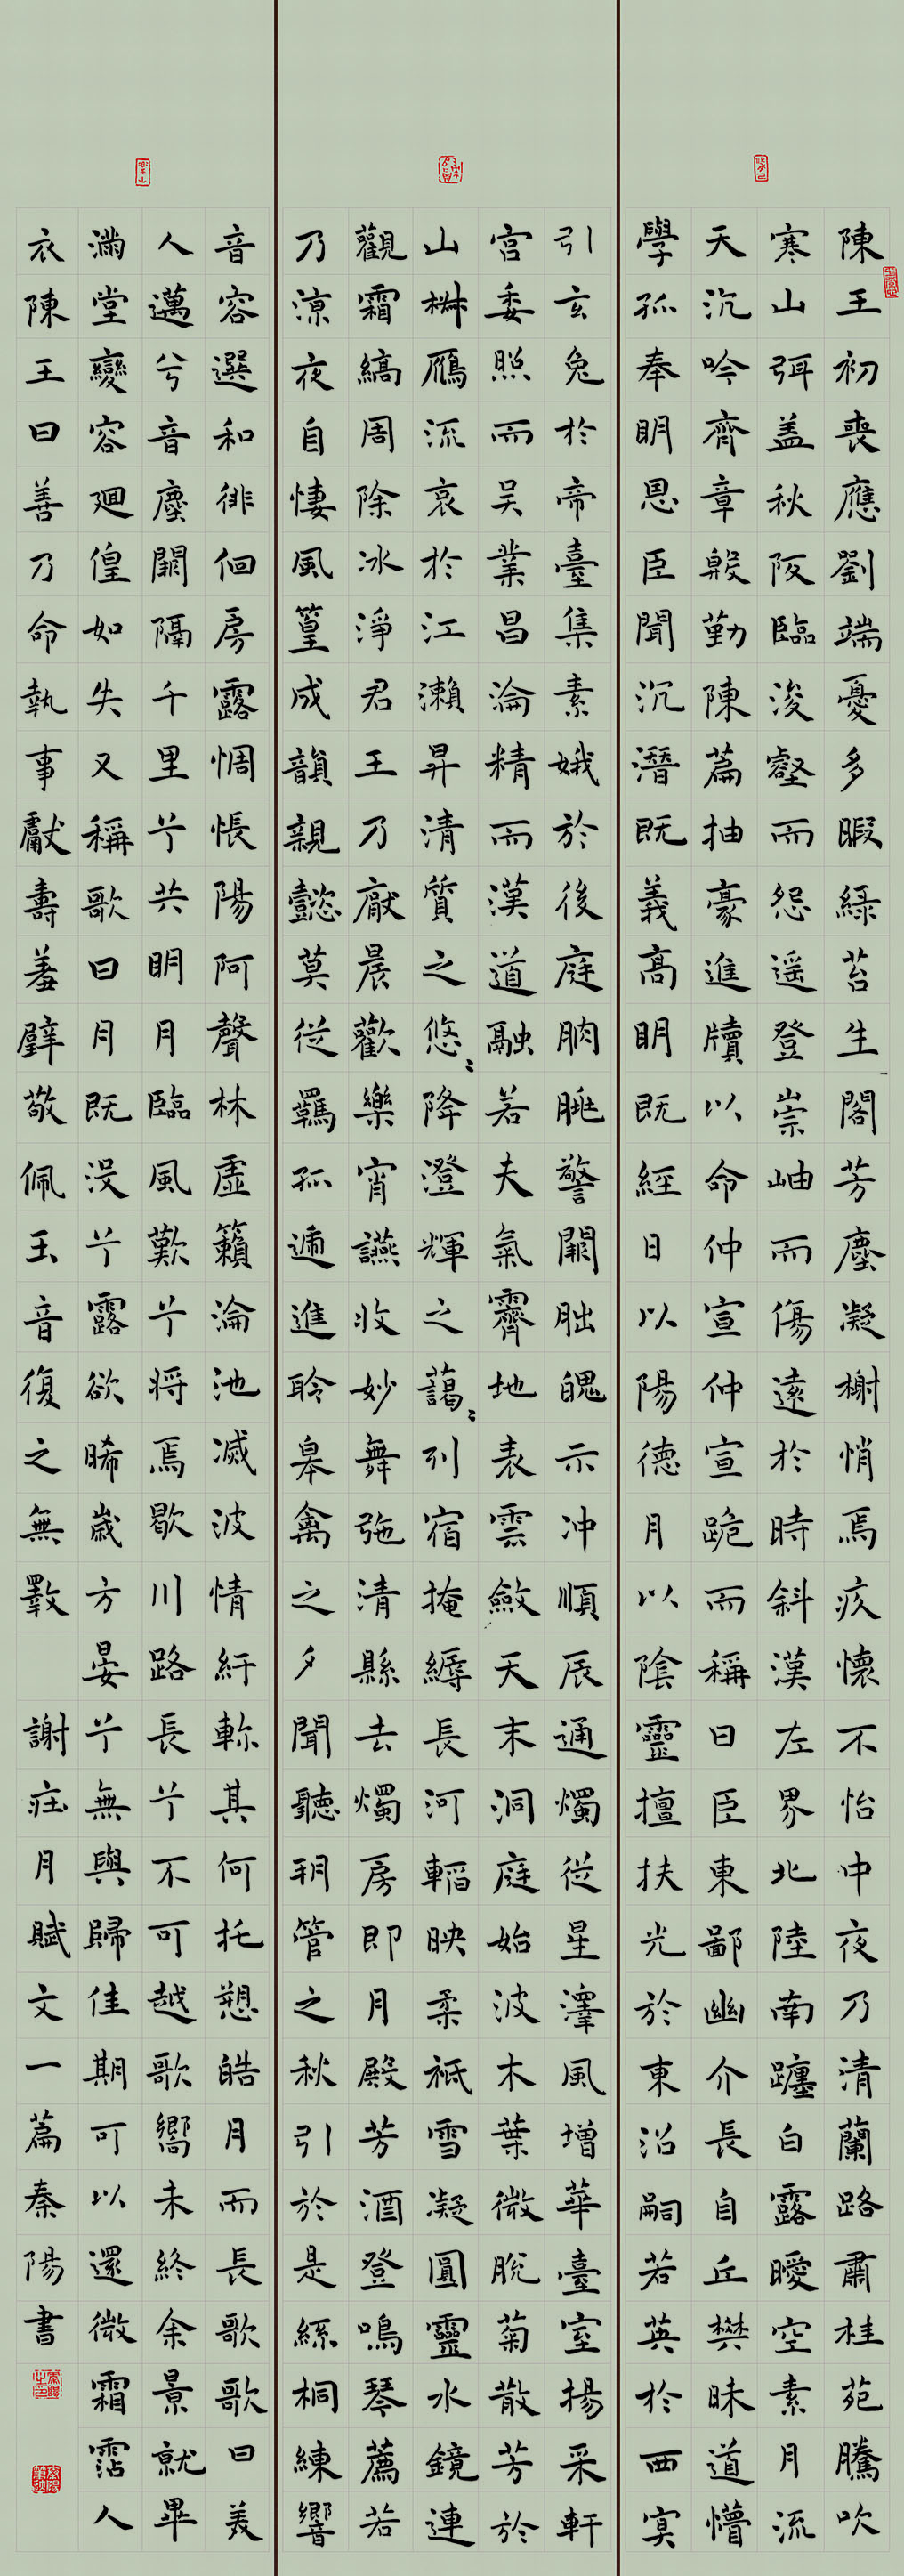 陳王初喪應劉端憂多暇緑苔生閣芳塵凝榭悄焉疚懷不怡中夜乃清蘭路肅桂苑騰吹
寒山弭盖秋阪臨浚壑而怨遥登崇岫而傷遠於時斜漢左界北陸南躔白露曖空素月流
天沉吟齊章殷勤陳篇抽豪進牘以命仲宣仲宣跪而稱曰臣東鄙幽介長自丘樊昧道懵
學孤奉明恩臣聞沉潛既義高明既經日以陽德月以陰靈擅扶光於東沼嗣若英於西冥
引玄兔於帝臺集素娥於後庭朒朓警闕朏魄示冲順辰通燭從星澤風增華臺室揚采軒
宫委照而吴業昌淪精而漢道融若夫氣霽地表雲斂天末洞庭始波木葉微脫菊散芳於
山椒鴈流哀於江瀨昇清質之悠〻降澄輝之藹〻列宿掩縟長河韜映柔祇雪凝圓靈水鏡連
觀霜縞周除冰淨君王乃厭晨歡樂宵讌收妙舞弛清縣去燭房即月殿芳酒登鳴琴薦若
乃涼夜自悽風篁成韻親懿莫從羈孤遞進聆皋禽之夕聞聽朔管之秋引於是絲桐練響
音容選和徘徊房露惆悵陽阿聲林虛籟淪池滅波情紆軫其何托愬皓月而長歌歌曰美
人邁兮音塵闕隔千里兮共明月臨風歎兮將焉歇川路長兮不可越歌響未終余景就畢
滿堂變容迴徨如失又稱歌曰月既没兮露欲晞歲方晏兮無與歸佳期可以還微霜霑人
衣陳王曰善乃命執事獻壽羞璧敬佩玉音復之無斁 謝莊月賦文一篇秦陽書